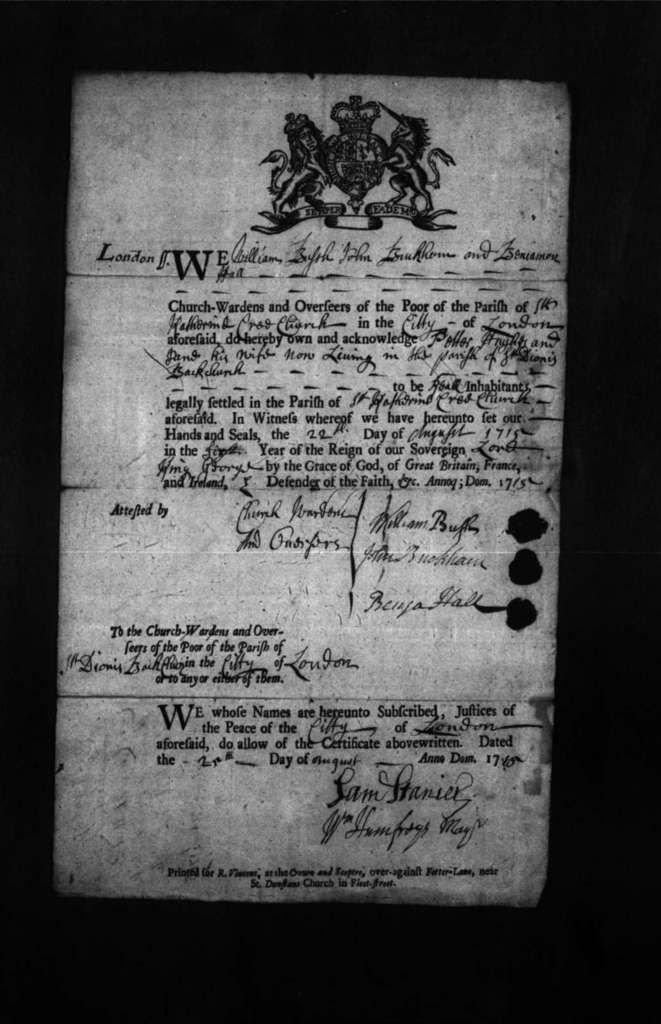 SEMPER EADEM
London ſſ. WE William Bush John Buckham and Beniamon
Hall
Church-Wardens and Overſeers of the Poor of the Pariſh of St
Katherine Cree Church in the Citty of London
aforeſaid, do hereby own and acknowledge Petter and
Jane his wife now Living in the parish of St Dionis
Backchurch
to be Inhabitants,
legally ſettled in the Pariſh of St Katherine Cree Church
aforeſaid. In Witneſs whereof we have hereunto ſet our
Hands and Seals, the 22th Day of August 1715
in the Year of the Reign of our Sovereign Lord
King George by the Grace of God, of Great Britain, France,
and Ireland, Defender of the Faith, &c. Annoq; Dom. 1715
Atteſted by
Church Wardens
And Overseers
William Bush
John Buckham
Benja Hall
To the Church-Wardens and Over-
ſeers of the Poor of the Pariſh of
St Dionis Backchurch in the Citty of London
or to any or either of them.
WE whoſe Names are hereunto Subſcribed, Juſtices of
the Peace of the Citty of London
aforeſaid, do allow of the Certificate abovewritten. Dated
the 25th Day of August Anno Dom. 1715
Sam Stanier
Wm Humfreys Mayr
Printed for R. Vincent, at the Crown and Sceptre, over-againſt Fetter-Lane, near
St. Dunſtans Church in Fleet-ſtreet.